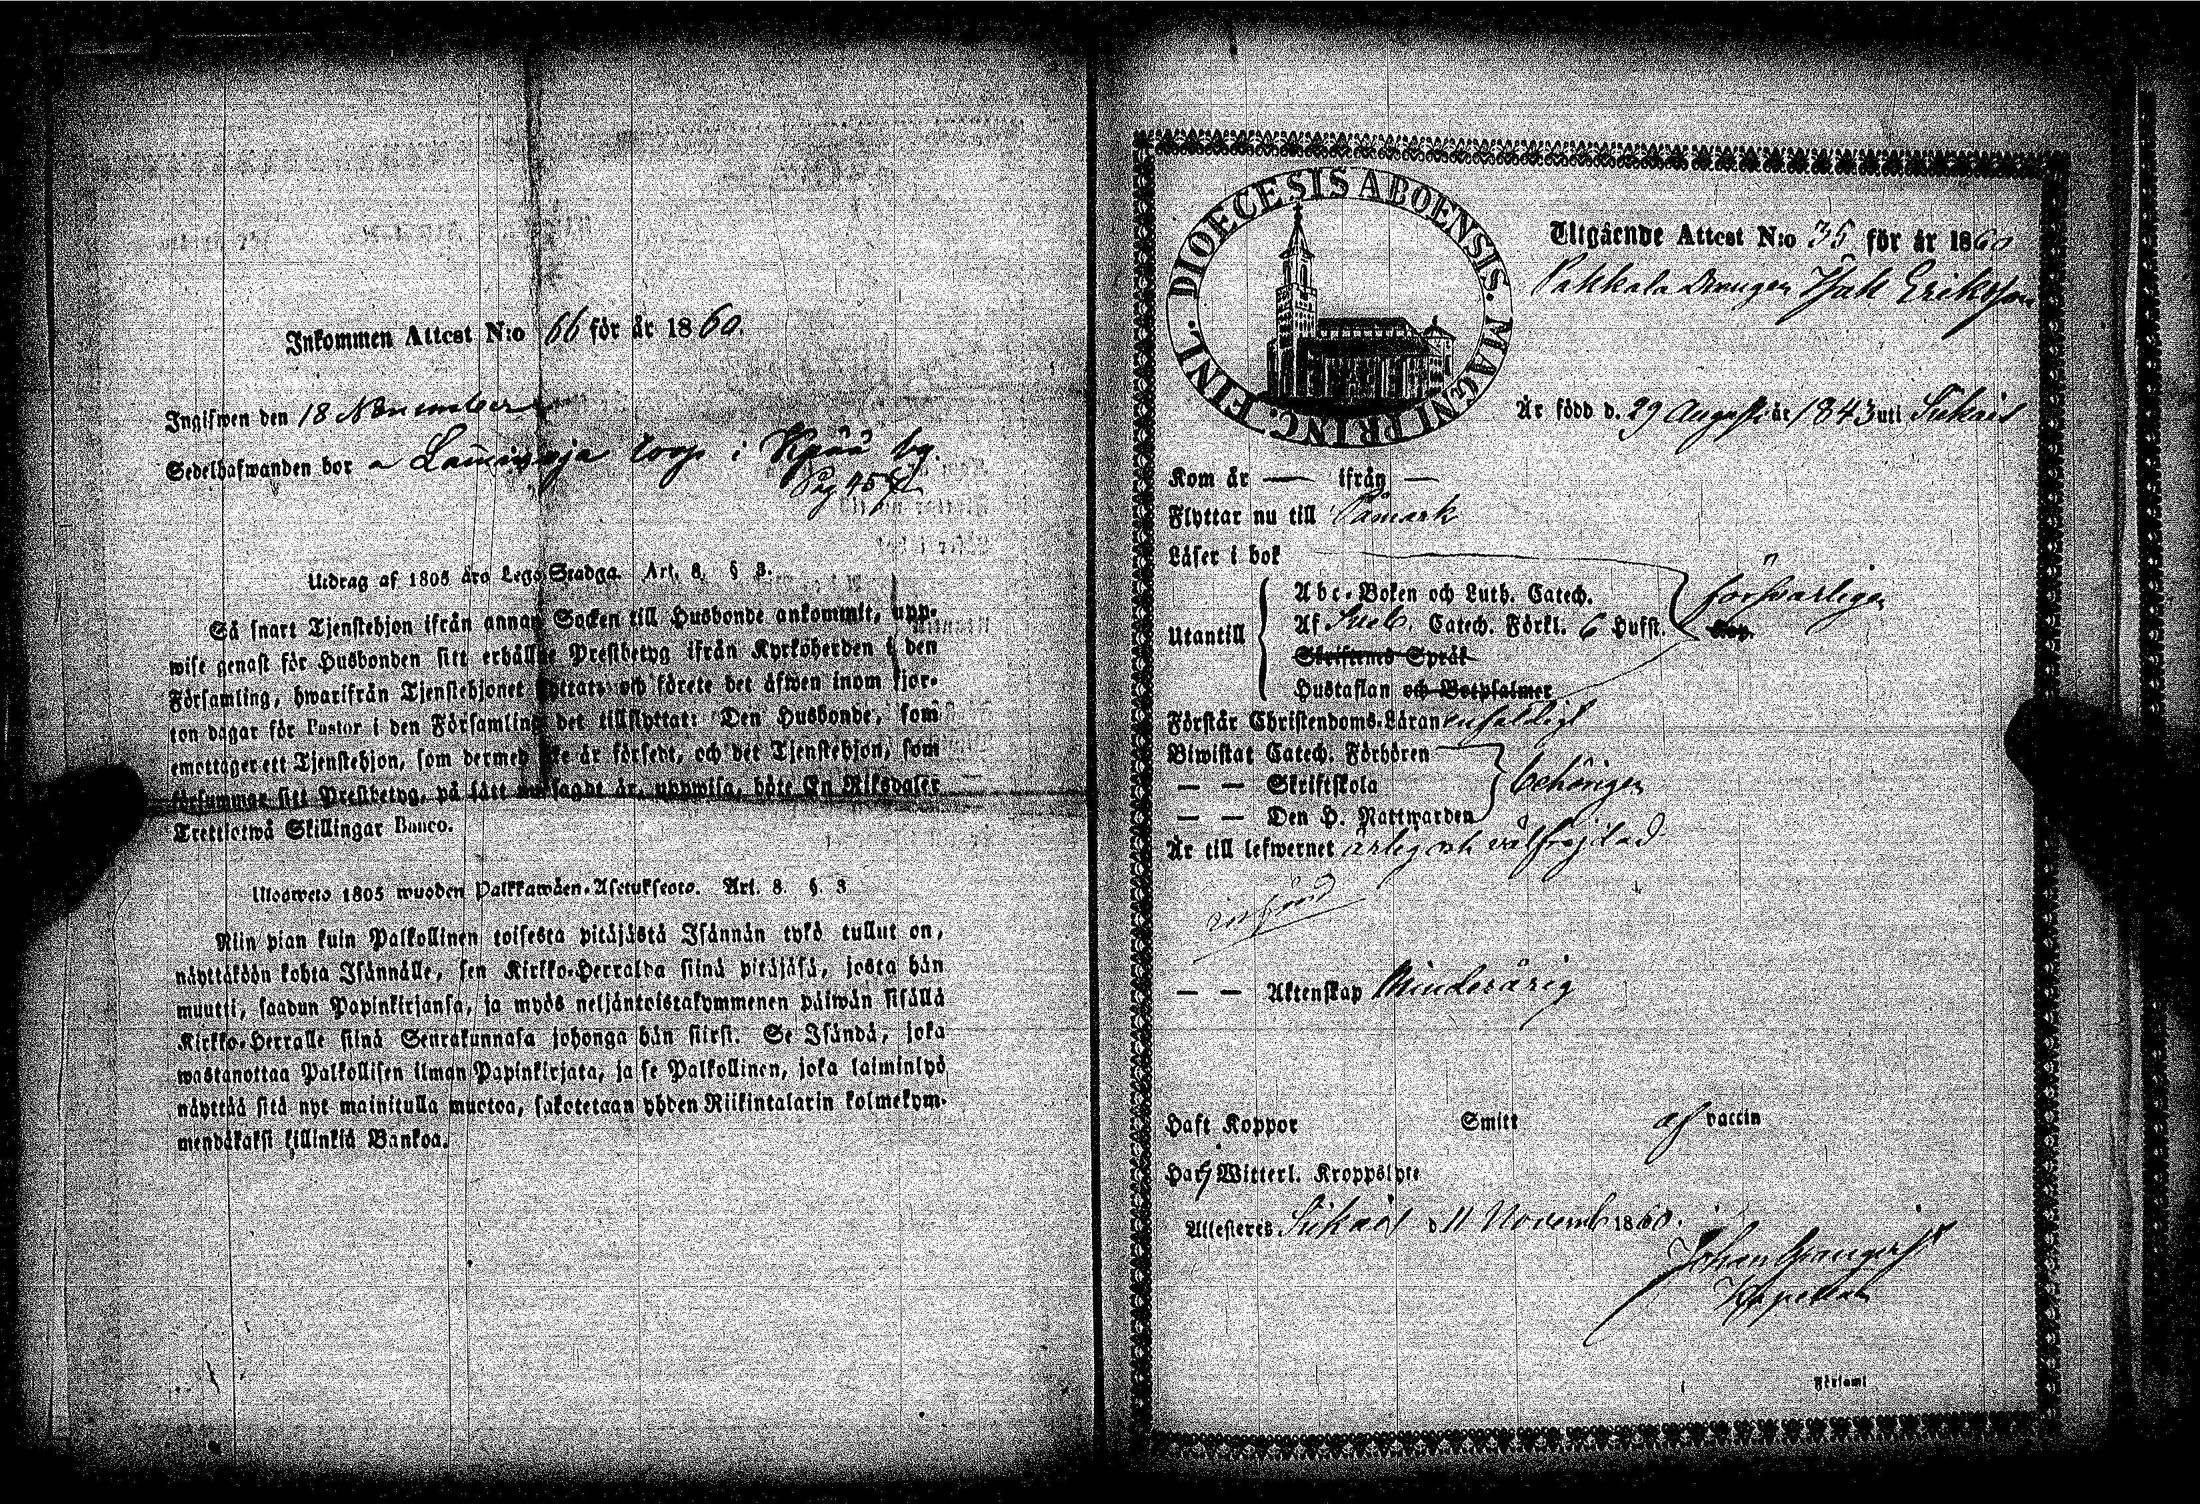 Inkommen Attest N:o 66 för år 1860.
Ingifwen den 18 November
Sedelhafwanden bor torp i by.
Pag 45
Utdrag af 1805 års Lego-Stadga. Art. 8. § 3.
Så snart Tjenstehjon ifrån annan Socken till Husbonde ankommit, upp-
wise genast för Husbonden sitt erhållne Prestbetyg ifrån Kyrkoherden i den
Församling, hwarifrån Tjenstehjonet flyttat, och förete det äfwen inom fjor-
ton dagar för Pastor i den Församling det tillflyttat: Den Husbonde, som
emottager ett Tjenstehjon, som dermed icke är försedt, och det Tjenstehjon, som
försummar sitt Prestbetyg, på sätt nu sagdt är, uppwisa, böte En Riksdaler
Trettiotwå Skillingar Banco.
Ulosweto 1805 wuoden Palkkawäen-Asetuksesta. Art. 8. §. 3
Niin pian kuin Palkollinen toisesta pitäjästä Isännän tykö tullut on,
näyttäköön kohta Isännälle, sen Kirkko-Herralda siinä pitäjäsä, josta hän
muutti, saadun Papinkirjansa, ja myös neljäntoistakymmenen päiwän sisällä
Kirkko-Herralle siinä Seurakunnasa johonga hän siirst. Se Isändä, joka
wastanottaa Palkollisen ilman Papinkirjata, ja se Palkollinen, joka laiminlyö
näyttää sitä nyt mainitulla muotoa, sakotetaan yhden Riikintalarin kolmekym-
mendäkaksi killinkiä Bankoa.
DIOECESIS ABOENSIS. MAGNI PRINC. FINL.
Utgående Attest N:o 35 för år 1860
Pakkala Drengen Isak Eriksson
Är född d. 29 Augusti år 1843 uti Siikais
Kom år — ifrån —
Flyttar nu till Påmark
Läser i bok
Abc-Boken och Luth. Catech.
försvarligen
Utantill
Af Sveb. Catech. Förkl. 6 Hufst.
Skriftenes Språk
Hustaflan och Botpsalmer
Förstår Christendoms-Läran enfaldigt
Biwistat Catech. Förhören
— — Skriftskola
behörigen
— — Den H. Nattwarden
Är till lefwernet ärlig och välfrejdad
införd
— — Äktenskap Minderårig
Haft Koppor Smitt af vaccin
Har ej Witterl. Kroppslyte
Attesteres Siikais d 11 Novemb 1860.
Johan
Kapellan
Församl